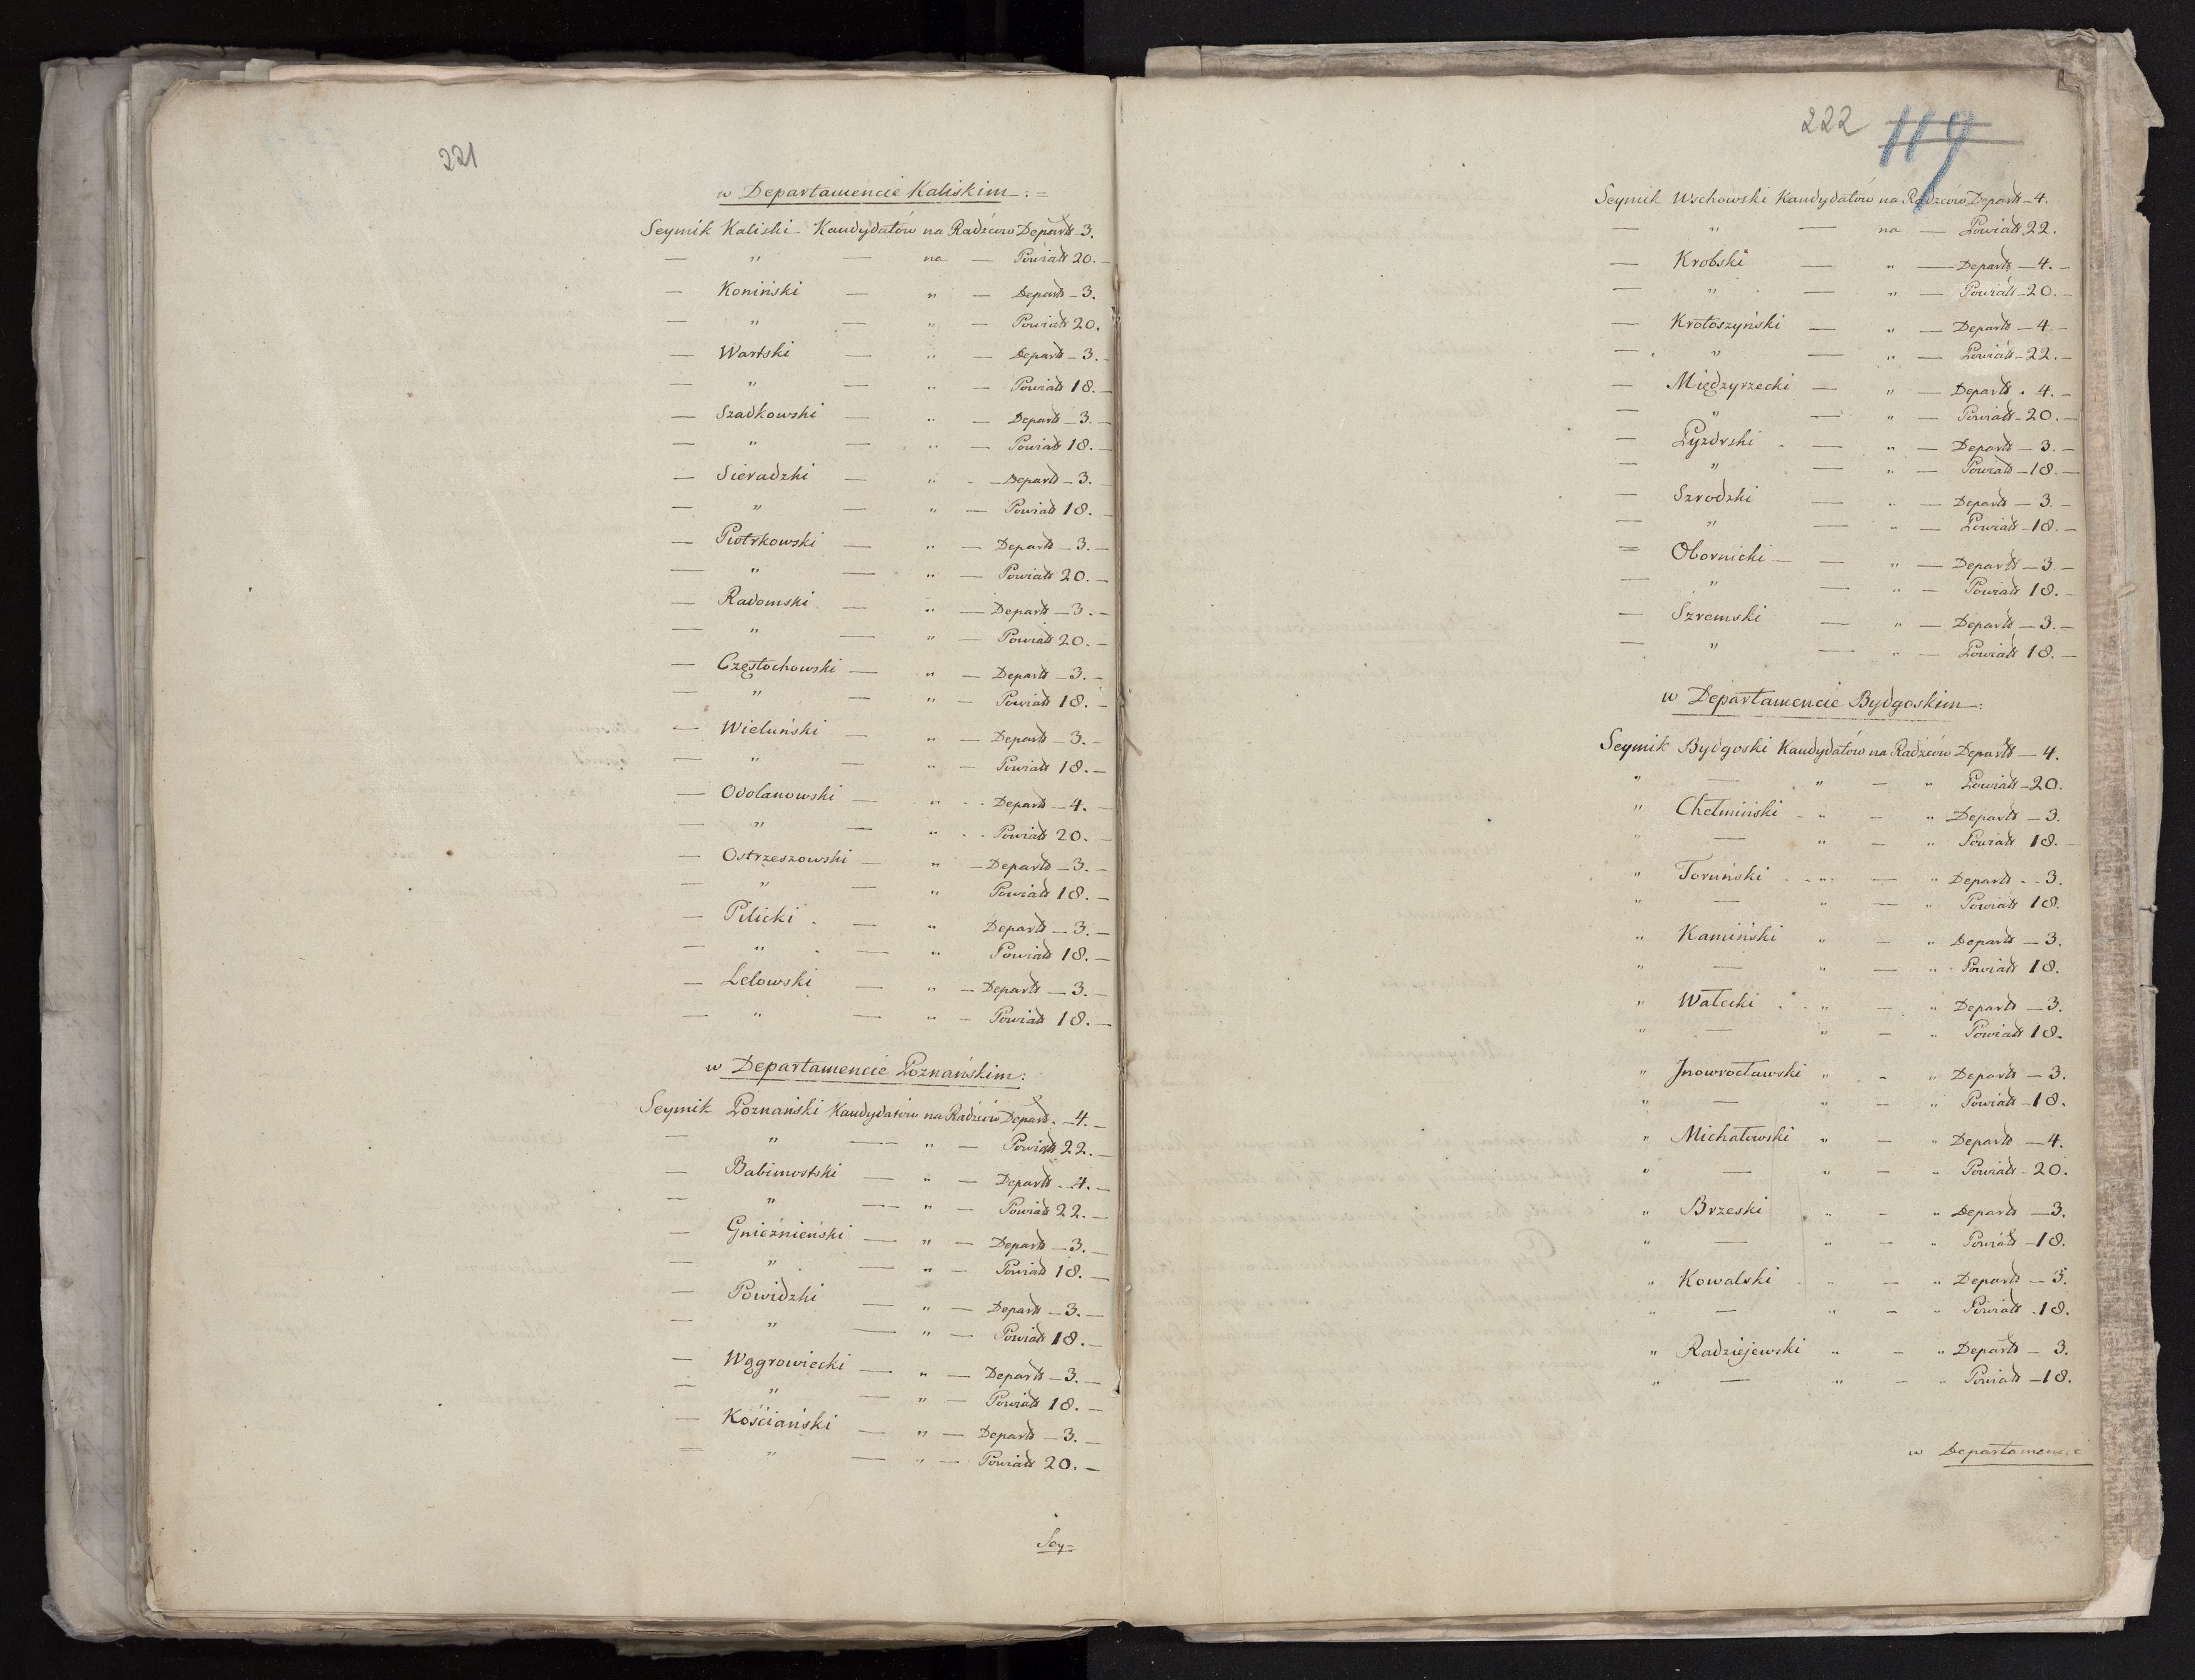 221
w Departamencie Kaliskim:=
Seymik Kaliski – Kandydatów na Radzców Departt – 3.
— " — na — Powiatt 20. –
— Koniński — " — Departt – 3.
— " — " — Powiatt 20.
— Wartski — " — Departt – 3. –
— " — " — Powiatt 18. –
— Szadkowski — " — Departt – 3. –
— " — " — Powiatt 18. –
— Sieradzki — " — Departt – 3. –
— " — " — Powiatt 18. –
— Piotrkowski — " — Departt – 3. –
— " — " — Powiatt 20. –
— Radomski — " — Departt – 3. –
— " — " — Powiatt 20. –
— Częstochowski — " — Departt – 3. –
— " — " — Powiatt 18. –
— Wieluński — " — Departt – 3. –
— " — " — Powiatt 18. –
— Odolanowski — " - - Departt – 4. –
— " — " - - Powiatt 20. –
— Ostrzeszowski — " — Departt – 3. –
— " — " Powiatt 18. –
— Pilicki - — " Departt – 3. –
— " - — " Powiatt 18. –
— Lelowski — " — Departt – 3. –
— " — " — Powiatt 18. –
w Departamencie Poznańskim:
Seymik Poznański Kandydatów na Radzców Departt. – 4. –
— " — " — Powiatt 22. –
— Babimostski — " — Departt – 4. –
— " — " — Powiatt 22. –
— Gnieźnieński — " — Departt – 3. –
— " — " — Powiatt 18. –
— Powidzki — " — Departt – 3. –
— " — " — Powiatt 18. –
— Wągrowiecki — " — Departt – 3. –
— " — " — Powiatt 18. –
— Kościański — " — Departt – 3. –
— " — " — Powiatt 20. –
Sey=
222 119
Seymik Wschowski Kandydatów na Radzców Departt – 4.
— " — na — Powiatt 22.
— Krobski — " — Departt – 4. –
— " — " — Powiatt – 20. –
— Krotoszyński — " — Departt – 4. –
— " — " — Powiatt – 22. –
— Międzyrzecki — " — Departt - 4. –
— " — " — Powiatt – 20. –
— Pyzdrski - — " — Departt – 3. –
— " — " — Powiatt – 18. –
— Szrodzki — " — Departt – 3. –
— " — " — Powiatt – 18. –
— Obornicki — — " — Departt – 3. –
— " — " — Powiatt 18. –
— Szremski — " — Departt – 3. –
— " — " — Powiatt 18. –
w Departamencie Bydgoskim:
Seymik Bydgoski Kandydatów na Radzców Departt – 4.
" — " — " Powiatt – 20.
" Chełmiński - " — " Departt – 3.
" — " — " Powiatt 18. –
" Toruński - - " — " Departt - - 3.
" — " — " Powiatt 18.
" Kamiński " — " Departt – 3.
" — " — " Powiatt 18.
" Wałecki - - " — " Departt – 3.
" — " — " Powiatt 18.
" Jnowrocławski " - " Departt – 3.
" — " — " Powiatt – 18.
" Michałowski " — " Departt – 4.
" — " — " Powiatt – 20.
" Brzeski " — " Departt – 3.
" — " — " Powiatt – 18.
" Kowalski - " — " Departt – 3.
" — " — " Powiatt - 18.
" Radziejewski " — " Departt – 3.
" — " — " Powiatt – 18.
w Departamencie